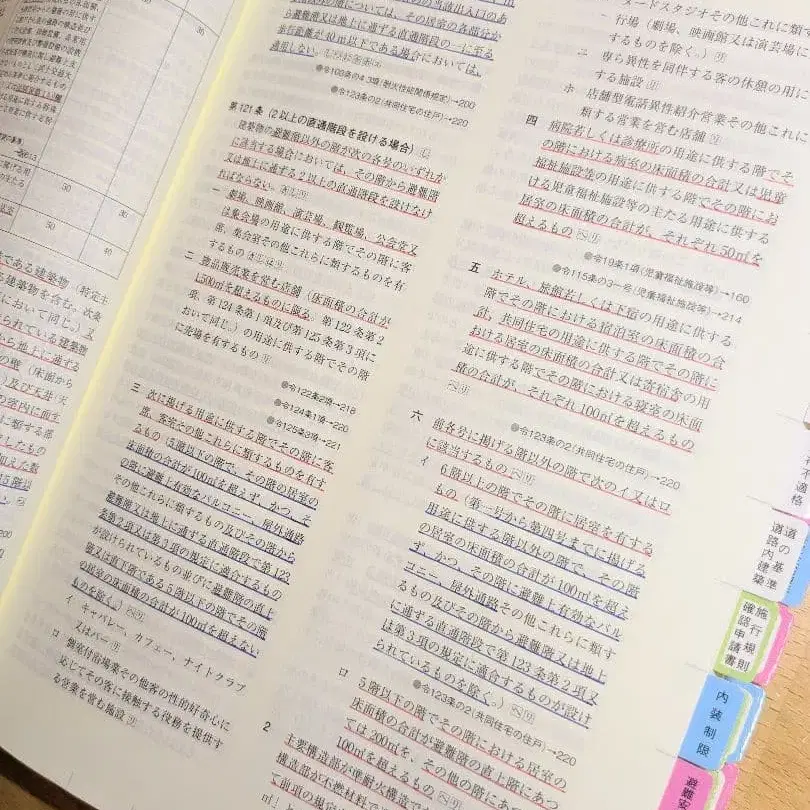 ある建築物(特定主
建築物を含む。次条
において同じ。)又
られている建築物
から地上に通ずる
の壁(床面から
の室内に面す
に類する部
をしたもの
行距離が40m以下である場合においては、
適用しない。
●令123条の2(共同住宅の住戸)→220
第121条(2以上の直通階段を設ける場合)
建築物の避難階以外の階が次の各号のいずれか
に該当する場合においては、その階から避難階
又は地上に通ずる2以上の直通階段を設けなけ
ればならない。
一 劇場、映画館、演芸場、観覧場、公会堂又
は集会場の用途に供する階でその階に客
席、集会室その他これらに類するものを有
するもの
二 物品販売業を営む店舗(床面積の合計が
1,500㎡を超えるものに限る。第122条第2
項、第124条第1項及び第125条第3項に
おいて同じ。)の用途に供する階でその階
に売場を有するもの
●令122条2項→218
●令124条1項→220
●令125条3項→221
三 次に掲げる用途に供する階でその階に客
席、客室その他これらに類するものを有す
るもの(5階以下の階で、その階の居室の
床面積の合計が100㎡を超えず、かつ、そ
の階に避難上有効なバルコニー、屋外通路
その他これらに類するもの及びその階から
避難階又は地上に通ずる直通階段で第123
条第2項又は第3項の規定に適合するもの
が設けられているもの並びに避難階の直上
階又は直下階である5階以下の階でその階
の居室の床面積の合計が100㎡を超えない
ものを除く。)
イ キャバレー、カフェー、ナイトクラブ
又はバー
ロ 個室付浴場業その他客の性的好奇心に
応じてその客に接触する役務を提供す
る営業を営む施設
ヌードスタジオその他これに類す
行場(劇場、映画館又は演芸場に
するものを除く。)
ニ 専ら異性を同伴する客の休憩の用に
する施設
ホ 店舗型電話異性紹介営業その他これに
類する営業を営む店舗
四 病院若しくは診療所の用途に供する階でそ
の階における病室の床面積の合計又は児童
福祉施設等の用途に供する階でその階にお
ける児童福祉施設等の主たる用途に供する
居室の床面積の合計が、それぞれ50㎡を
超えるもの
●令19条1項(児童福祉施設等)→160
●令115条の3一号(児童福祉施設等)→214
五 ホテル、旅館若しくは下宿の用途に供する
階でその階における宿泊室の床面積の合
計、共同住宅の用途に供する階でその階に
おける居室の床面積の合計又は寄宿舎の用
途に供する階でその階における寝室の床面
積の合計が、それぞれ100㎡を超えるもの
●令123条の2(共同住宅の住戸)→220
六 前各号に掲げる階以外の階で次のイ又はロ
に該当するもの
イ 6階以上の階でその階に居室を有する
もの(第一号から第四号までに掲げる
用途に供する階以外の階で、その階
の居室の床面積の合計が100㎡を超え
ず、かつ、その階に避難上有効なバル
コニー、屋外通路その他これらに類す
るもの及びその階から避難階又は地上
に通ずる直通階段で第123条第2項又
は第3項の規定に適合するものが設け
られているものを除く。)
●令123条の2(共同住宅の住戸)→220
ロ 5階以下の階でその階における居室の
床面積の合計が避難階の直上階にあつ
ては200㎡を、その他の階にあつ
100㎡を超えるもの
2 主要構造部が準耐火構造で
構造部が不燃材料で
て前項の規定
道路内建築
道の基準
確認申請書
施行規則
内装制限
避難安